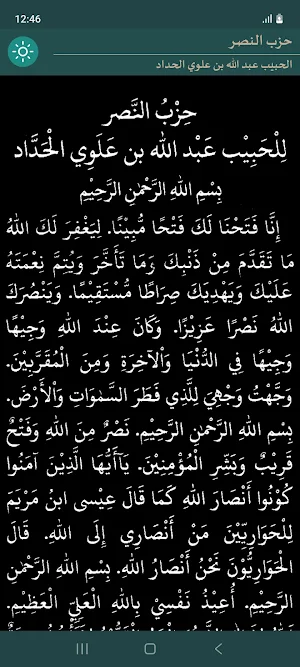 12:46
حزب النصر
الحبيب عبد الله بن علوي الحداد
حِزْبُ النَّصر
لِلْحَبِيْب عَبْد الله بن عَلَوِي الْحَدَّاد
بِسْمِ اللهِ الرَّحْمٰنِ الرَّحِيْمِ
إِنَّا فَتَحْنَا لَكَ فَتْحًا مُّبِيْنًا. لِيَغْفِرَ لَكَ اللهُ
مَا تَقَدَّمَ مِنْ ذَنْبِكَ وَمَا تَأَخَّرَ وَيُتِمَّ نِعْمَتَهُ
عَلَيْكَ وَيَهْدِيَكَ صِرَاطًا مُّسْتَقِيْمًا. وَيَنْصُرَكَ
اللهُ نَصْرًا عَزِيْزًا. وَكَانَ عِنْدَ اللهِ وَجِيْهًا
وَجِيْهًا فِي الدُّنْيَا وَالْآخِرَةِ وَمِنَ الْمُقَرَّبِيْنَ.
وَجَّهْتُ وَجْهِيَ لِلَّذِي فَطَرَ السَّمٰوَاتِ وَالْأَرْضَ.
بِسْمِ اللهِ الرَّحْمٰنِ الرَّحِيْمِ. نَصْرٌ مِنَ اللهِ وَفَتْحٌ
قَرِيْبٌ وَبَشِّرِ الْمُؤْمِنِيْنَ. يَآأَيُّهَا الَّذِيْنَ آمَنُوا
كُوْنُوا أَنْصَارَ اللهِ كَمَا قَالَ عِيْسى ابنُ مَرْيَمَ
لِلْحَوَارِيِّيْنَ مَنْ أَنْصَارِي إِلَى اللهِ. قَالَ
الْحَوَارِيُّوْنَ نَحْنُ أَنْصَارُ اللهِ. بِسْمِ اللهِ الرَّحْمٰنِ
الرَّحِيْمِ. أُعِيْذُ نَفْسِيْ بِاللهِ الْعَلِيِّ الْعَظِيْمِ.